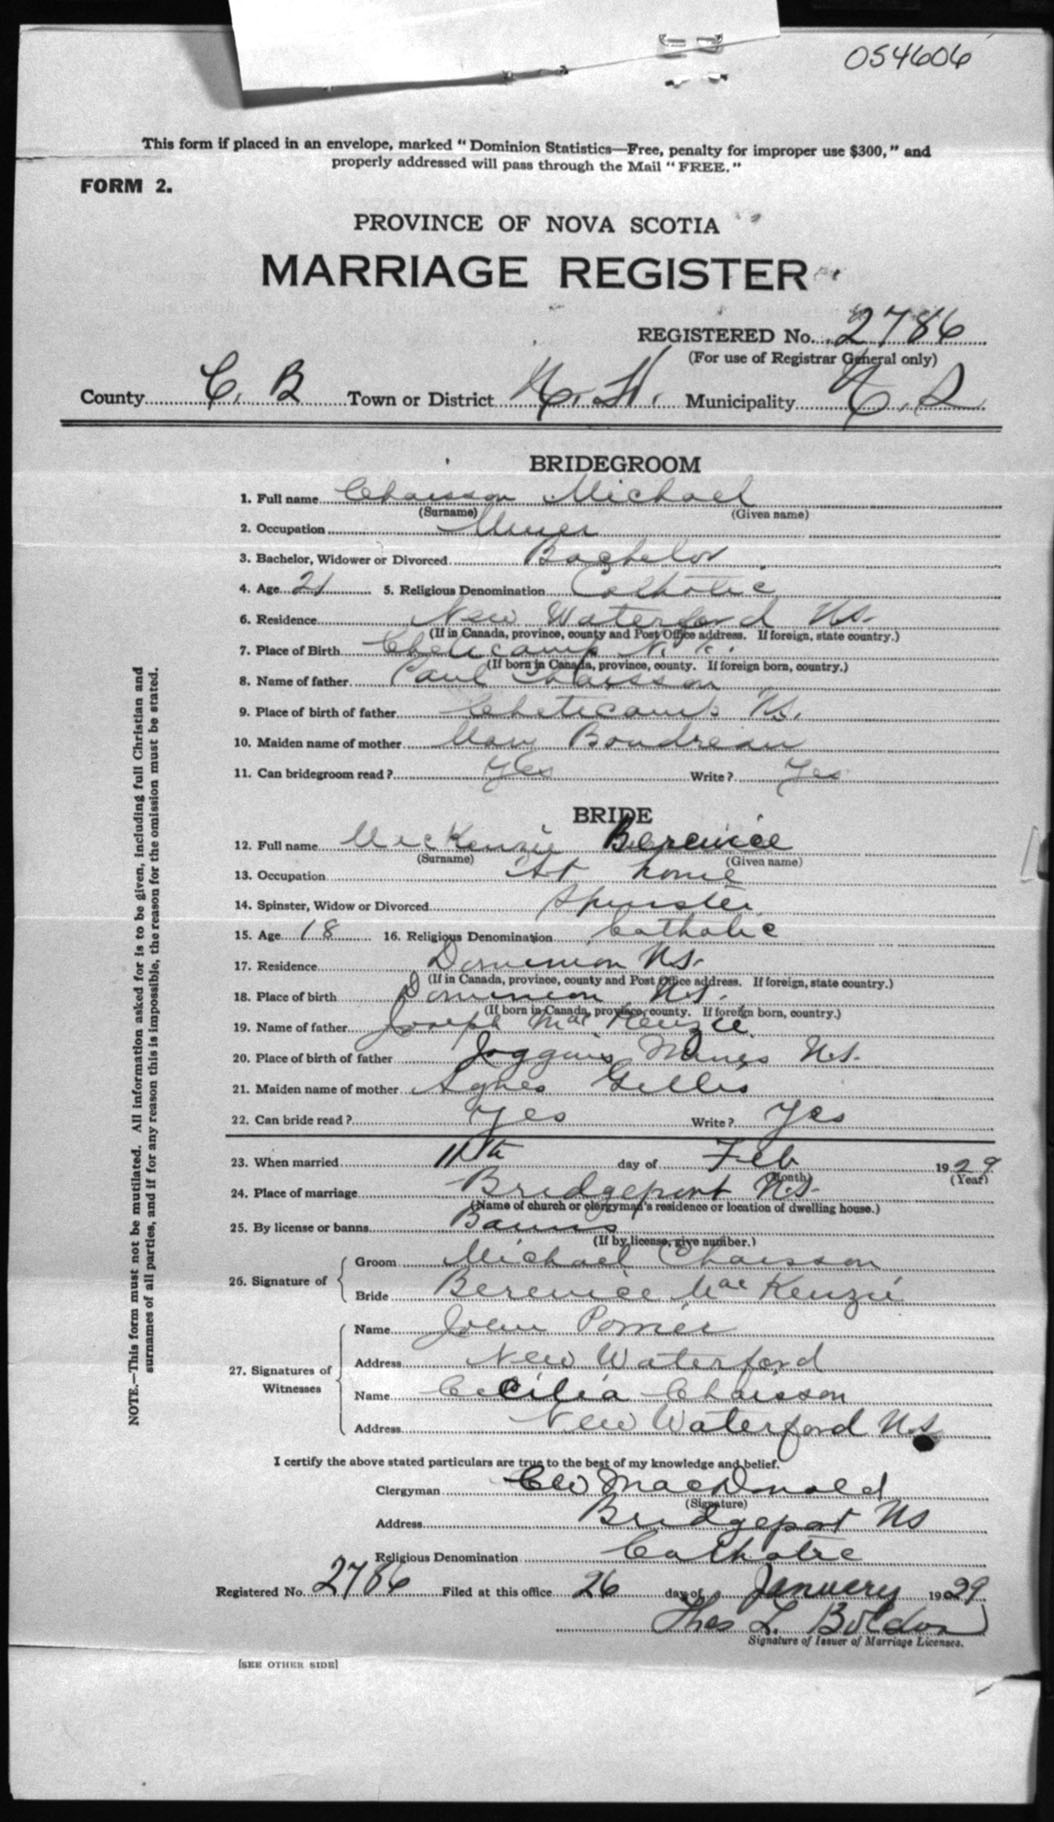 054606
This form if placed in an envelope, marked "Dominion Statistics—Free, penalty for improper use $300," and
properly addressed will pass through the Mail "FREE."
FORM 2.
PROVINCE OF NOVA SCOTIA
MARRIAGE REGISTER
REGISTERED No. 2786
(For use of Registrar General only)
County C. B Town or District Municipality
BRIDEGROOM
1. Full name Chaisson Michael
(Surname) (Given name)
2. Occupation Miner
3. Bachelor, Widower or Divorced Bachelor
4. Age 21 5. Religious Denomination Catholic
6. Residence New Waterford N.S.
(If in Canada, province, county and Post Office address. If foreign, state country.)
7. Place of Birth Cheticamp N.S.
(If born in Canada, province, county. If foreign born, country.)
8. Name of father Paul Chaisson
9. Place of birth of father Cheticamp N.S.
10. Maiden name of mother Mary Boudreau
11. Can bridegroom read? Yes Write? Yes
BRIDE
12. Full name MacKenzie Berenice
(Surname) (Given name)
13. Occupation At home
14. Spinster, Widow or Divorced Spinster
15. Age 18 16. Religious Denomination Catholic
17. Residence Dominion N.S.
(If in Canada, province, county and Post Office address. If foreign, state country.)
18. Place of birth Dominion N.S.
(If born in Canada, province, county. If foreign born, country.)
19. Name of father Joseph MacKenzie
20. Place of birth of father Joggins Mines N.S.
21. Maiden name of mother Agnes Gillis
22. Can bride read? Yes Write? Yes
23. When married 11th day of Feb 1929
(Month) (Year)
24. Place of marriage Bridgeport N.S.
(Name of church or clergyman's residence or location of dwelling house.)
25. By license or banns Banns
(If by license, give number.)
26. Signature of Groom Michael Chaisson
Bride Berenice MacKenzie
27. Signatures of Witnesses
Name Poirier
Address New Waterford
Name Cecilia Chaisson
Address New Waterford N.S
I certify the above stated particulars are true to the best of my knowledge and belief.
Clergyman MacDonald
(Signature)
Address Bridgeport NS
Religious Denomination Catholic
Registered No. 2786 Filed at this office 26 day of January 1929
Thos L. Boldon
Signature of Issuer of Marriage Licenses.
[SEE OTHER SIDE]
NOTE.—This form must not be mutilated. All information asked for is to be given, including full Christian and
surnames of all parties, and if for any reason this is impossible, the reason for the omission must be stated.